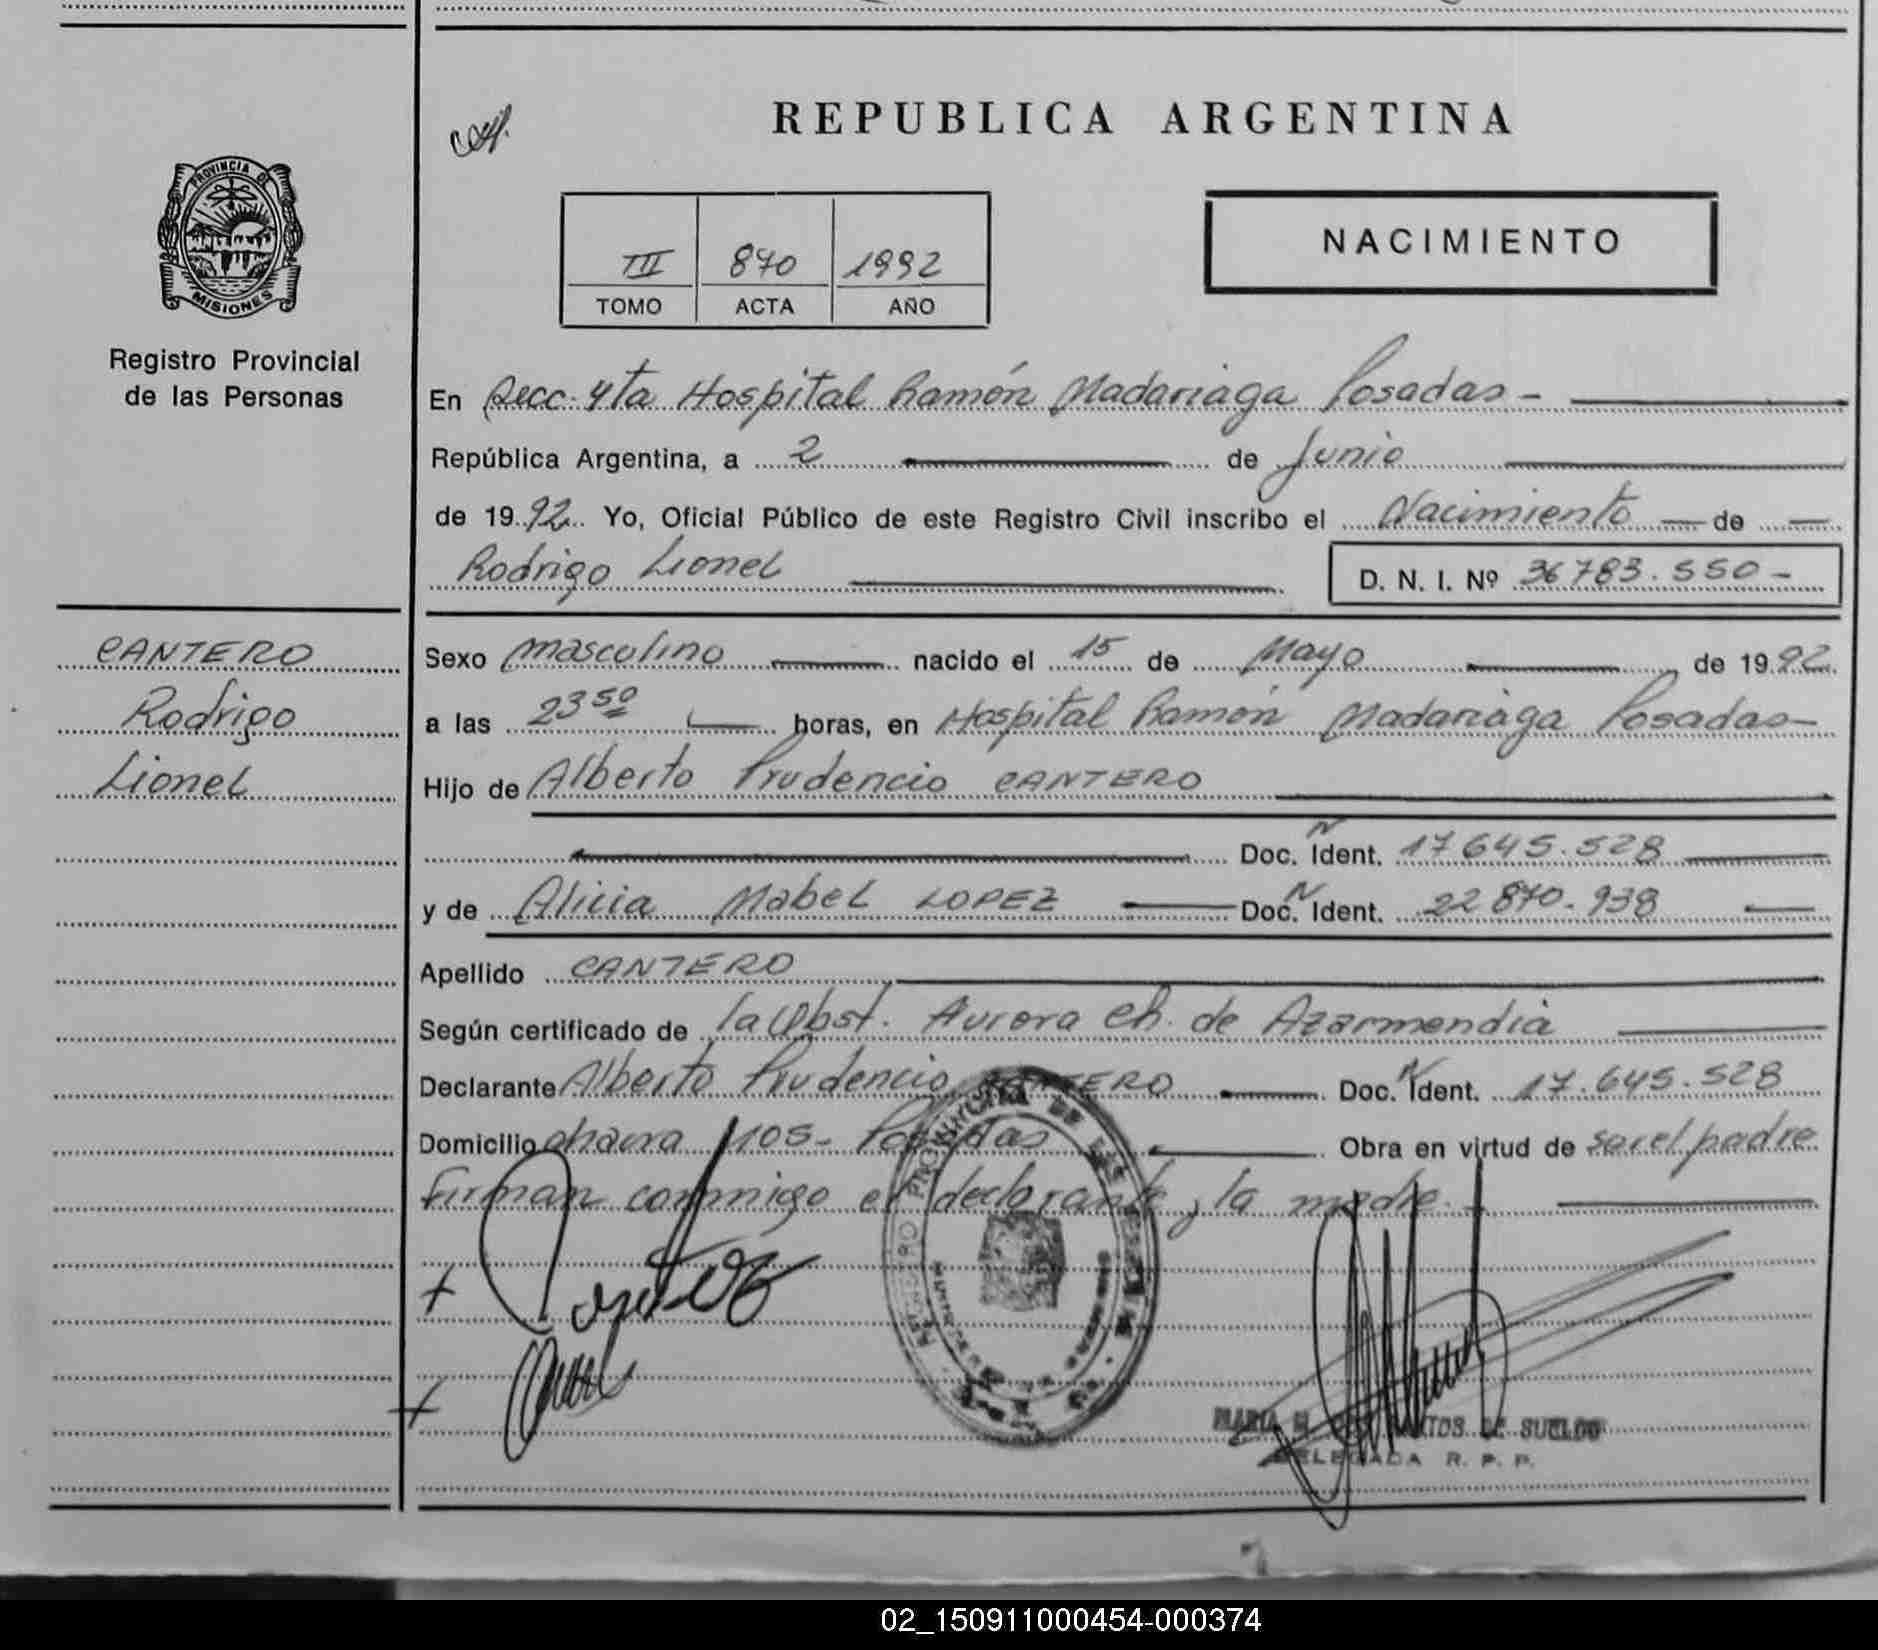 REPUBLICA ARGENTINA
PROVINCIA DE
MISIONES
Registro Provincial
de las Personas
III 870 1992
TOMO ACTA AÑO
NACIMIENTO
En Secc. 4ta Hospital Ramón Madariaga Posadas -
República Argentina, a 2 de Junio
de 1992 Yo, Oficial Público de este Registro Civil inscribo el Nacimiento de
Rodrigo Lionel D. N. I. Nº 36783.550 -
CANTERO
Rodrigo
Lionel
Sexo masculino nacido el 15 de Mayo de 1992
a las 23 50 horas, en Hospital Ramón Madariaga Posadas -
Hijo de Alberto Prudencio CANTERO
Doc. Ident. 17645.528
y de Alicia Mabel LOPEZ Doc. Ident. 22870.938
Apellido CANTERO
Según certificado de la Obst. Aurora Ch. de Azarmendia
Declarante Alberto Prudencio CANTERO Doc. Ident. 17.645.528
Domicilio chacra 105- Posadas Obra en virtud de ser el padre
Firman conmigo el declarante y la madre. -
DE SUELDO
DELEGADA R. P. P.
02_150911000454-000374